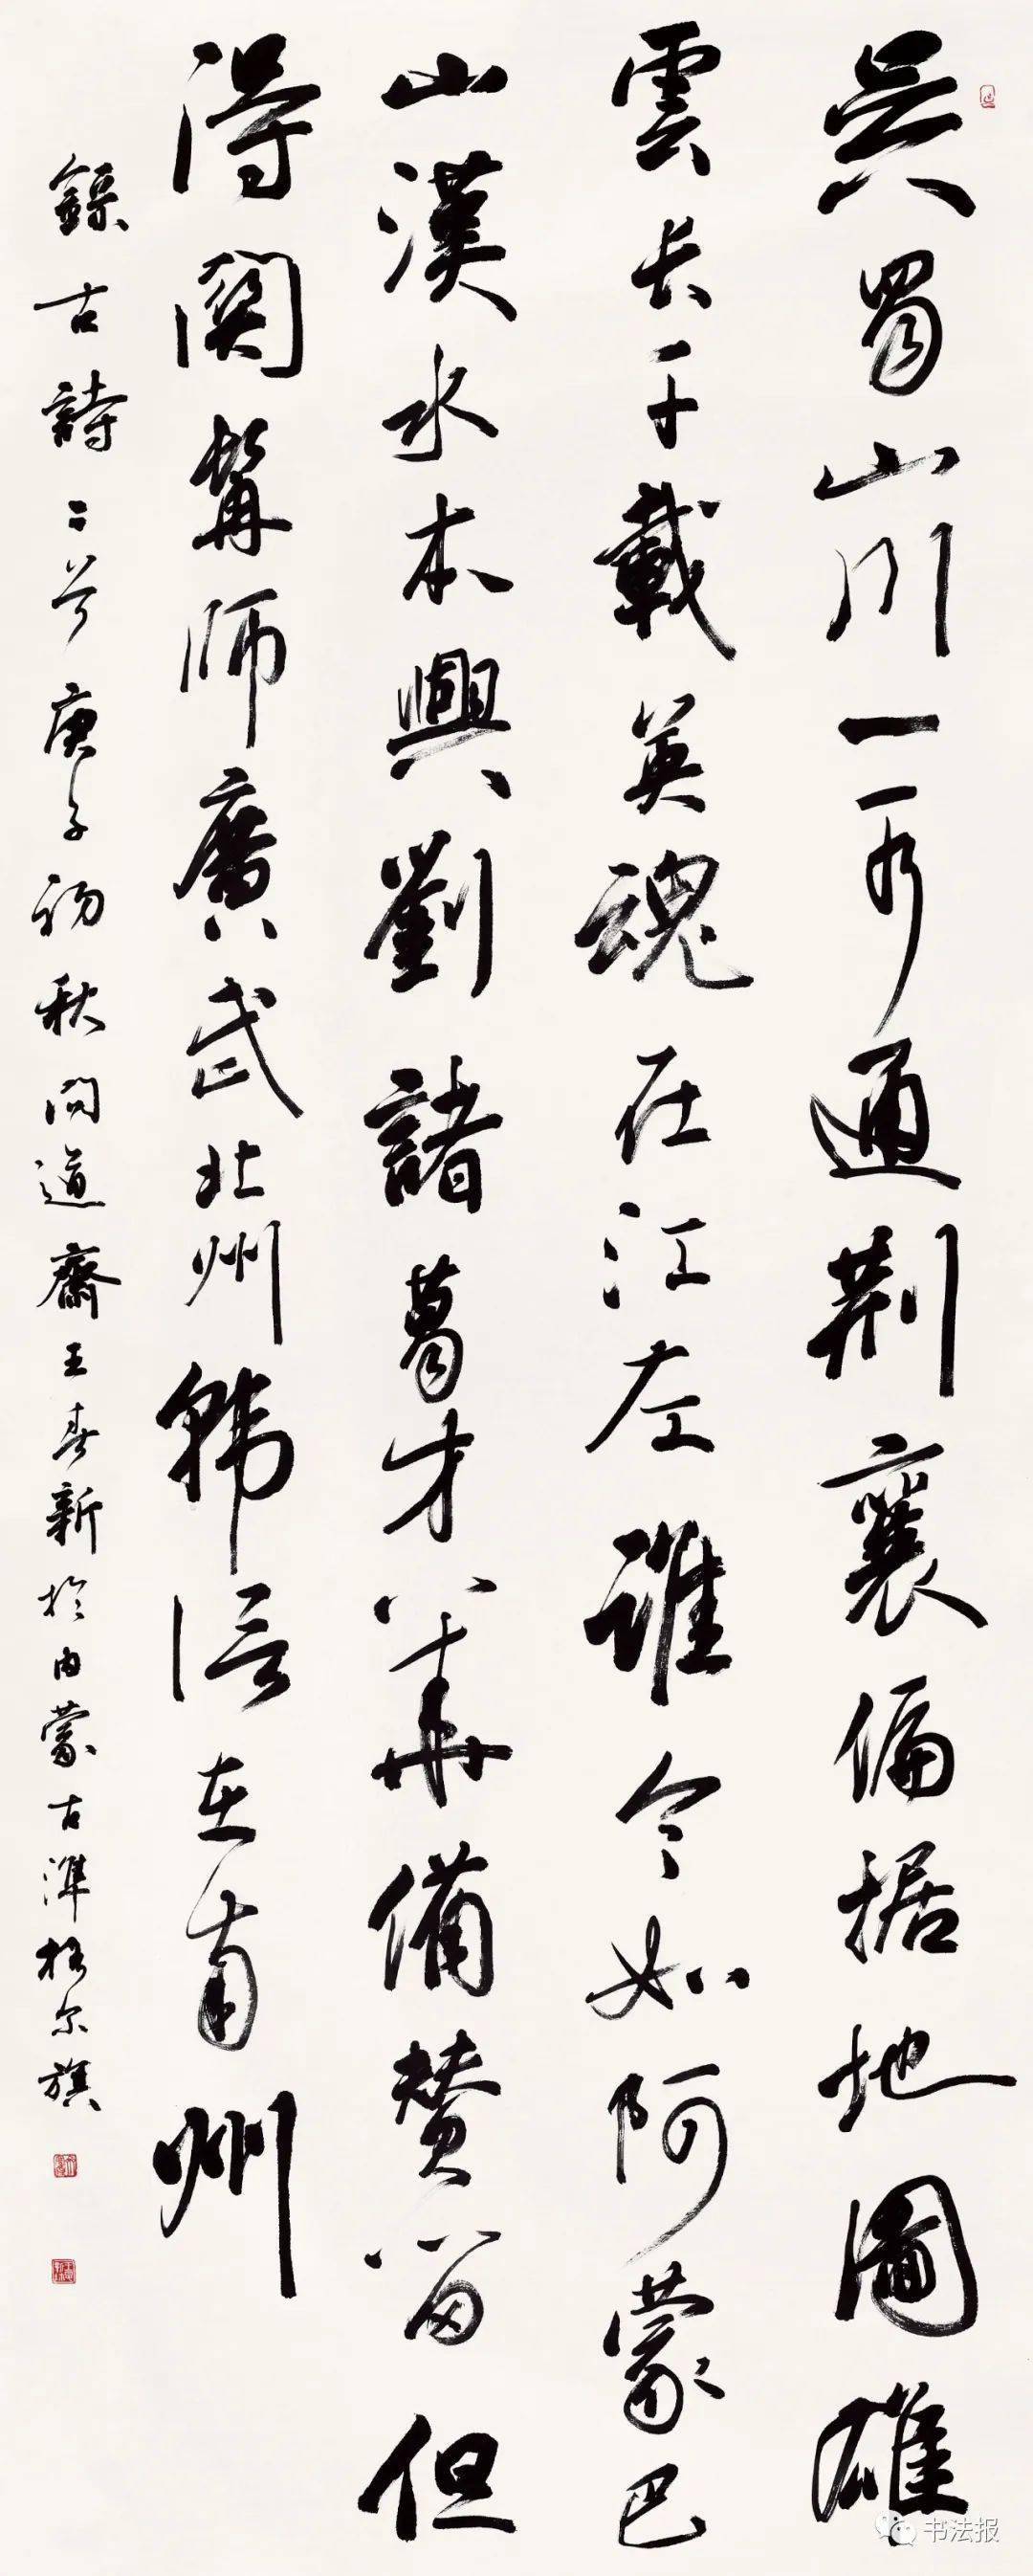 吳蜀山川一可通荆襄偏据地圖雄
雲长千載英魂在江左誰今如阿蒙巴
山漢水本興劉諸葛才華備贊留但
得關髯師廣武北州韩信在南州
録古詩二首庚子初秋问道齋王春新於内蒙古準格尔旗
书法报